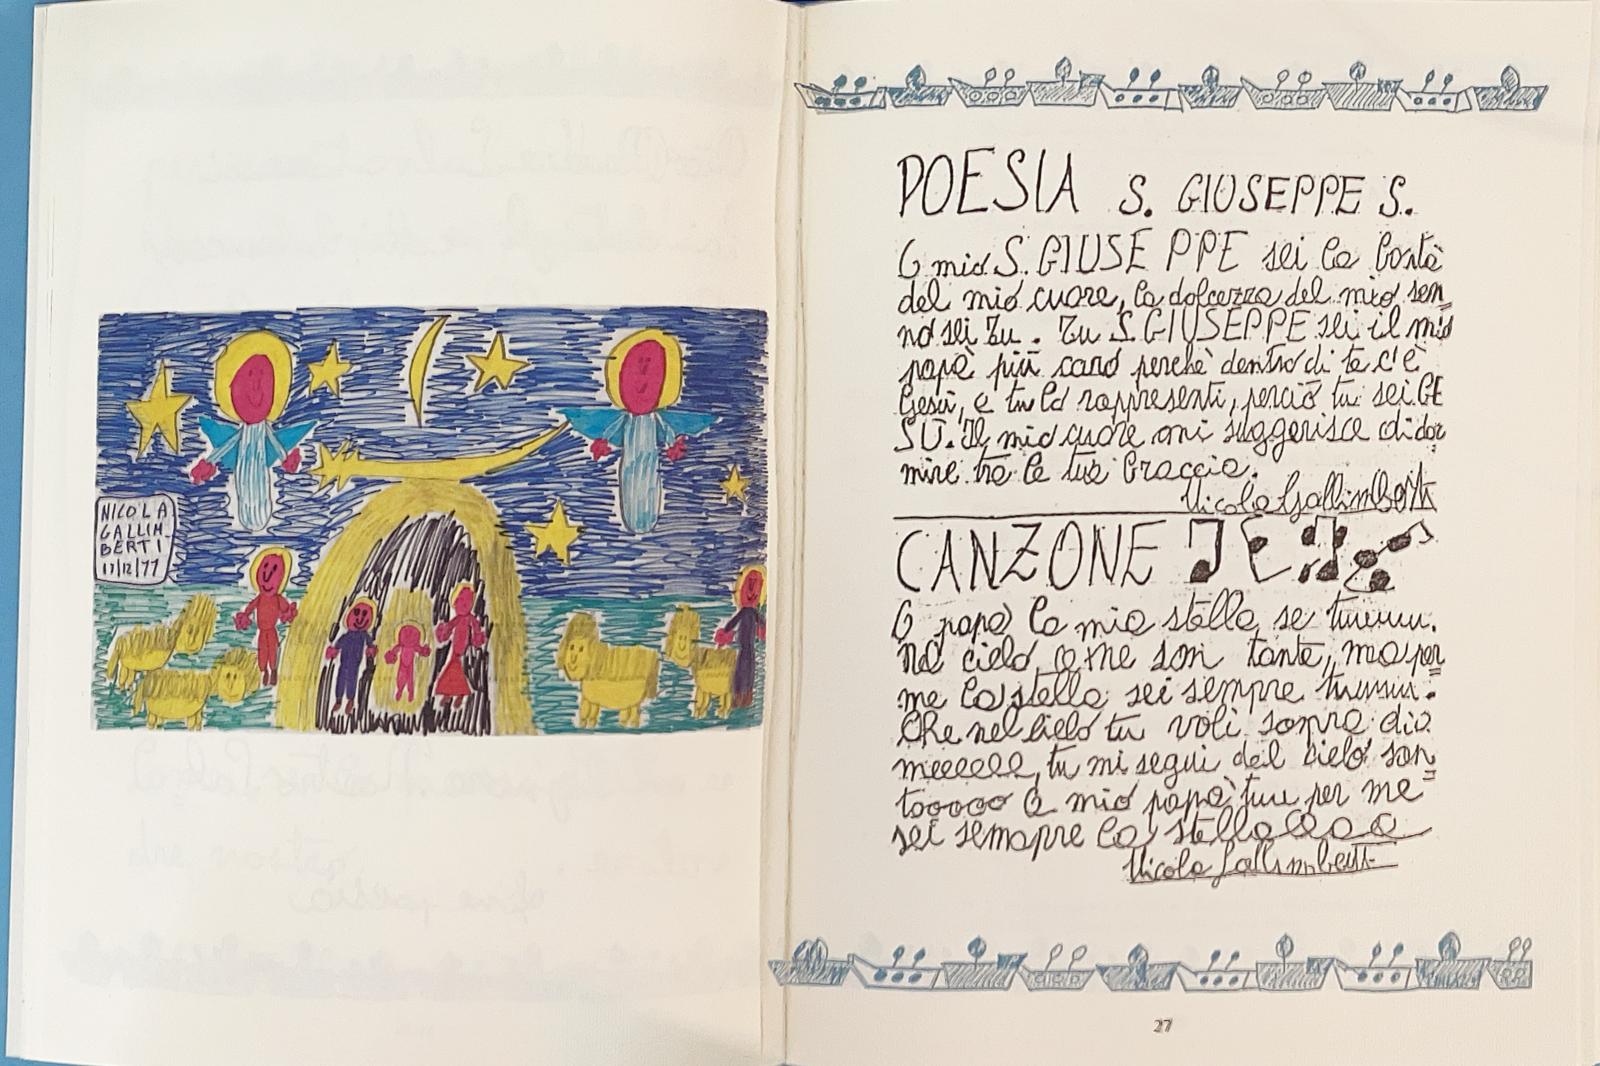 NICOLA
GALLIM-
BERTI
17/12/77
POESIA S. GIUSEPPE S.
O mio S. GIUSEPPE sei la bontà
del mio cuore, la dolcezza del mio sen=
no sei tu. Tu S. GIUSEPPE sei il mio
papà più caro perchè dentro di te c'è
Gesù, e tu lo rappresenti, perciò tu sei GE
SÙ. Il mio cuore mi suggerisce di dor
mire tra le tue braccia.
Nicola Gallimberti
CANZONE
O papà la mia stella se tuuuuu.
nel cielo ce ne son tante, ma per
me la stella sei sempre tuuuuu.
Che nel cielo tu voli sopra di
meeeeee, tu mi segui dal cielo san=
tooooo O mio papà tuu per me
sei sempre la stellaaaaa
Nicola Gallimberti
27